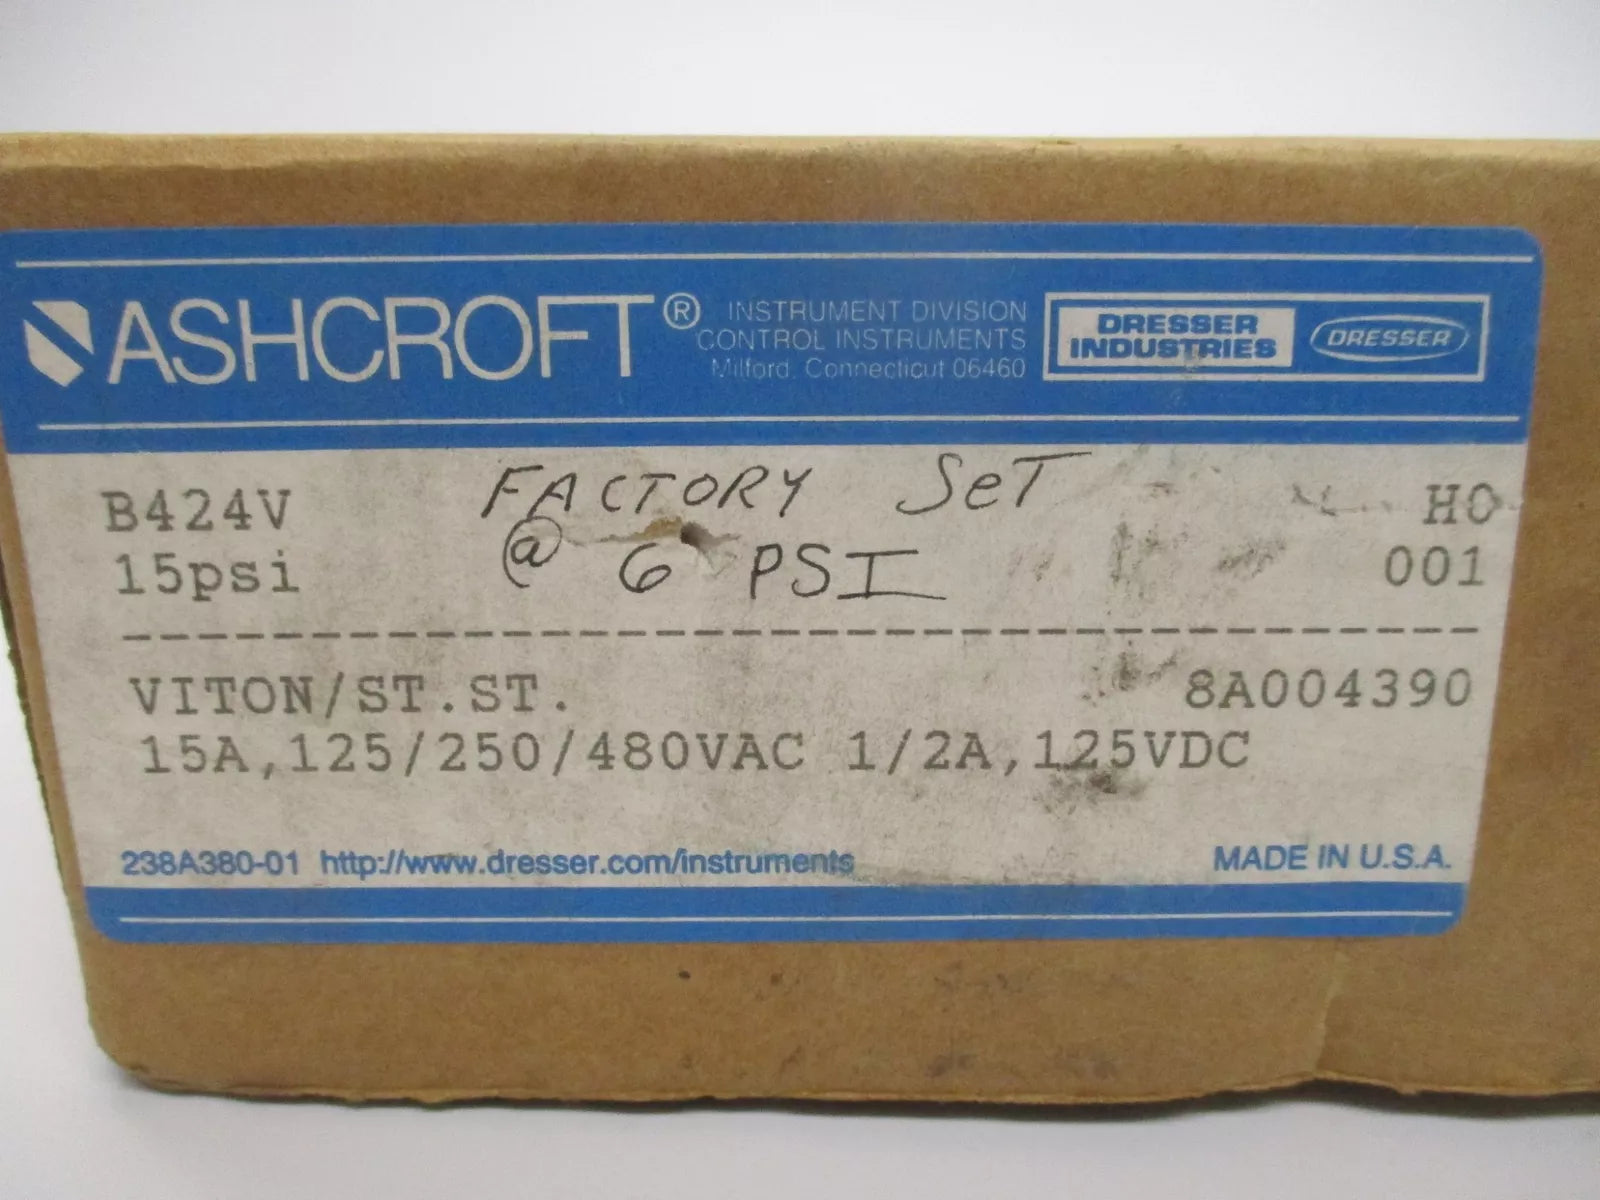 ASHCROFT®
INSTRUMENT DIVISION
CONTROL INSTRUMENTS
Milford, Connecticut 06460
DRESSER
INDUSTRIES
DRESSER
B424V
15psi
FACTORY SeT
@ 6 PSI
HO
001
VITON/ST.ST.
8A004390
15A,125/250/480VAC 1/2A,125VDC
238A380-01 http://www.dresser.com/instruments
MADE IN U.S.A.